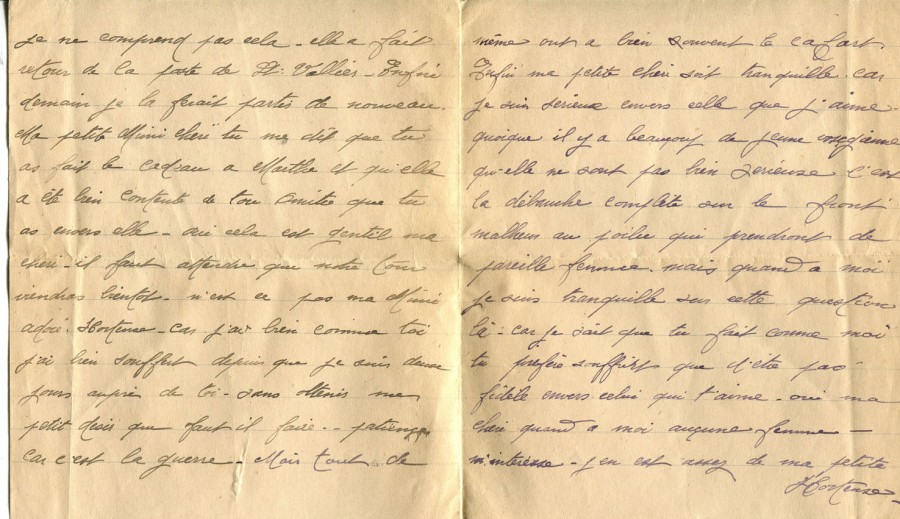 je ne comprend pas cela - elle a fait
retour de la poste de St: Vallier - Enfin
demain je la ferait partir de nouveau.
Ma petite Mimi cheri tu me dit que tu
as fait le cadeau a Marthe et qu'elle
a été bien contente de ton amitié que tu
as envers elle - oui cela est gentil ma
cheri - il faut attendre que notre tour
viendras bientot - n'est ce pas ma Mimi
adoré. Hortense - car j'ai bien comme toi
j'ai bien souffert depuis que je suis deux
jours auprès de toi - sans obtenir mes
petit désir que faut il faire - - patience
car c'est la guerre - Mais tout de
même ont a bien souvent le cafart
Enfin ma petite cheri soit tranquille. car
je suis serieux envers celle que j'aime -
quoique il y a beaucoup de jeune
qu'elle ne sont pas bien serieuse c'est
la débauche complète sur le front
malheur au poilu qui prendront de
pareille femme. mais quand a moi
je suis tranquille sur cette question
là - car je sait que tu fait comme moi
tu prefère souffrir que d'être pas
fidèle envers celui qui t'aime - oui ma
cheri quand a moi aucune femme -
m'interesse - j'en est assez de ma petite
Hortense -